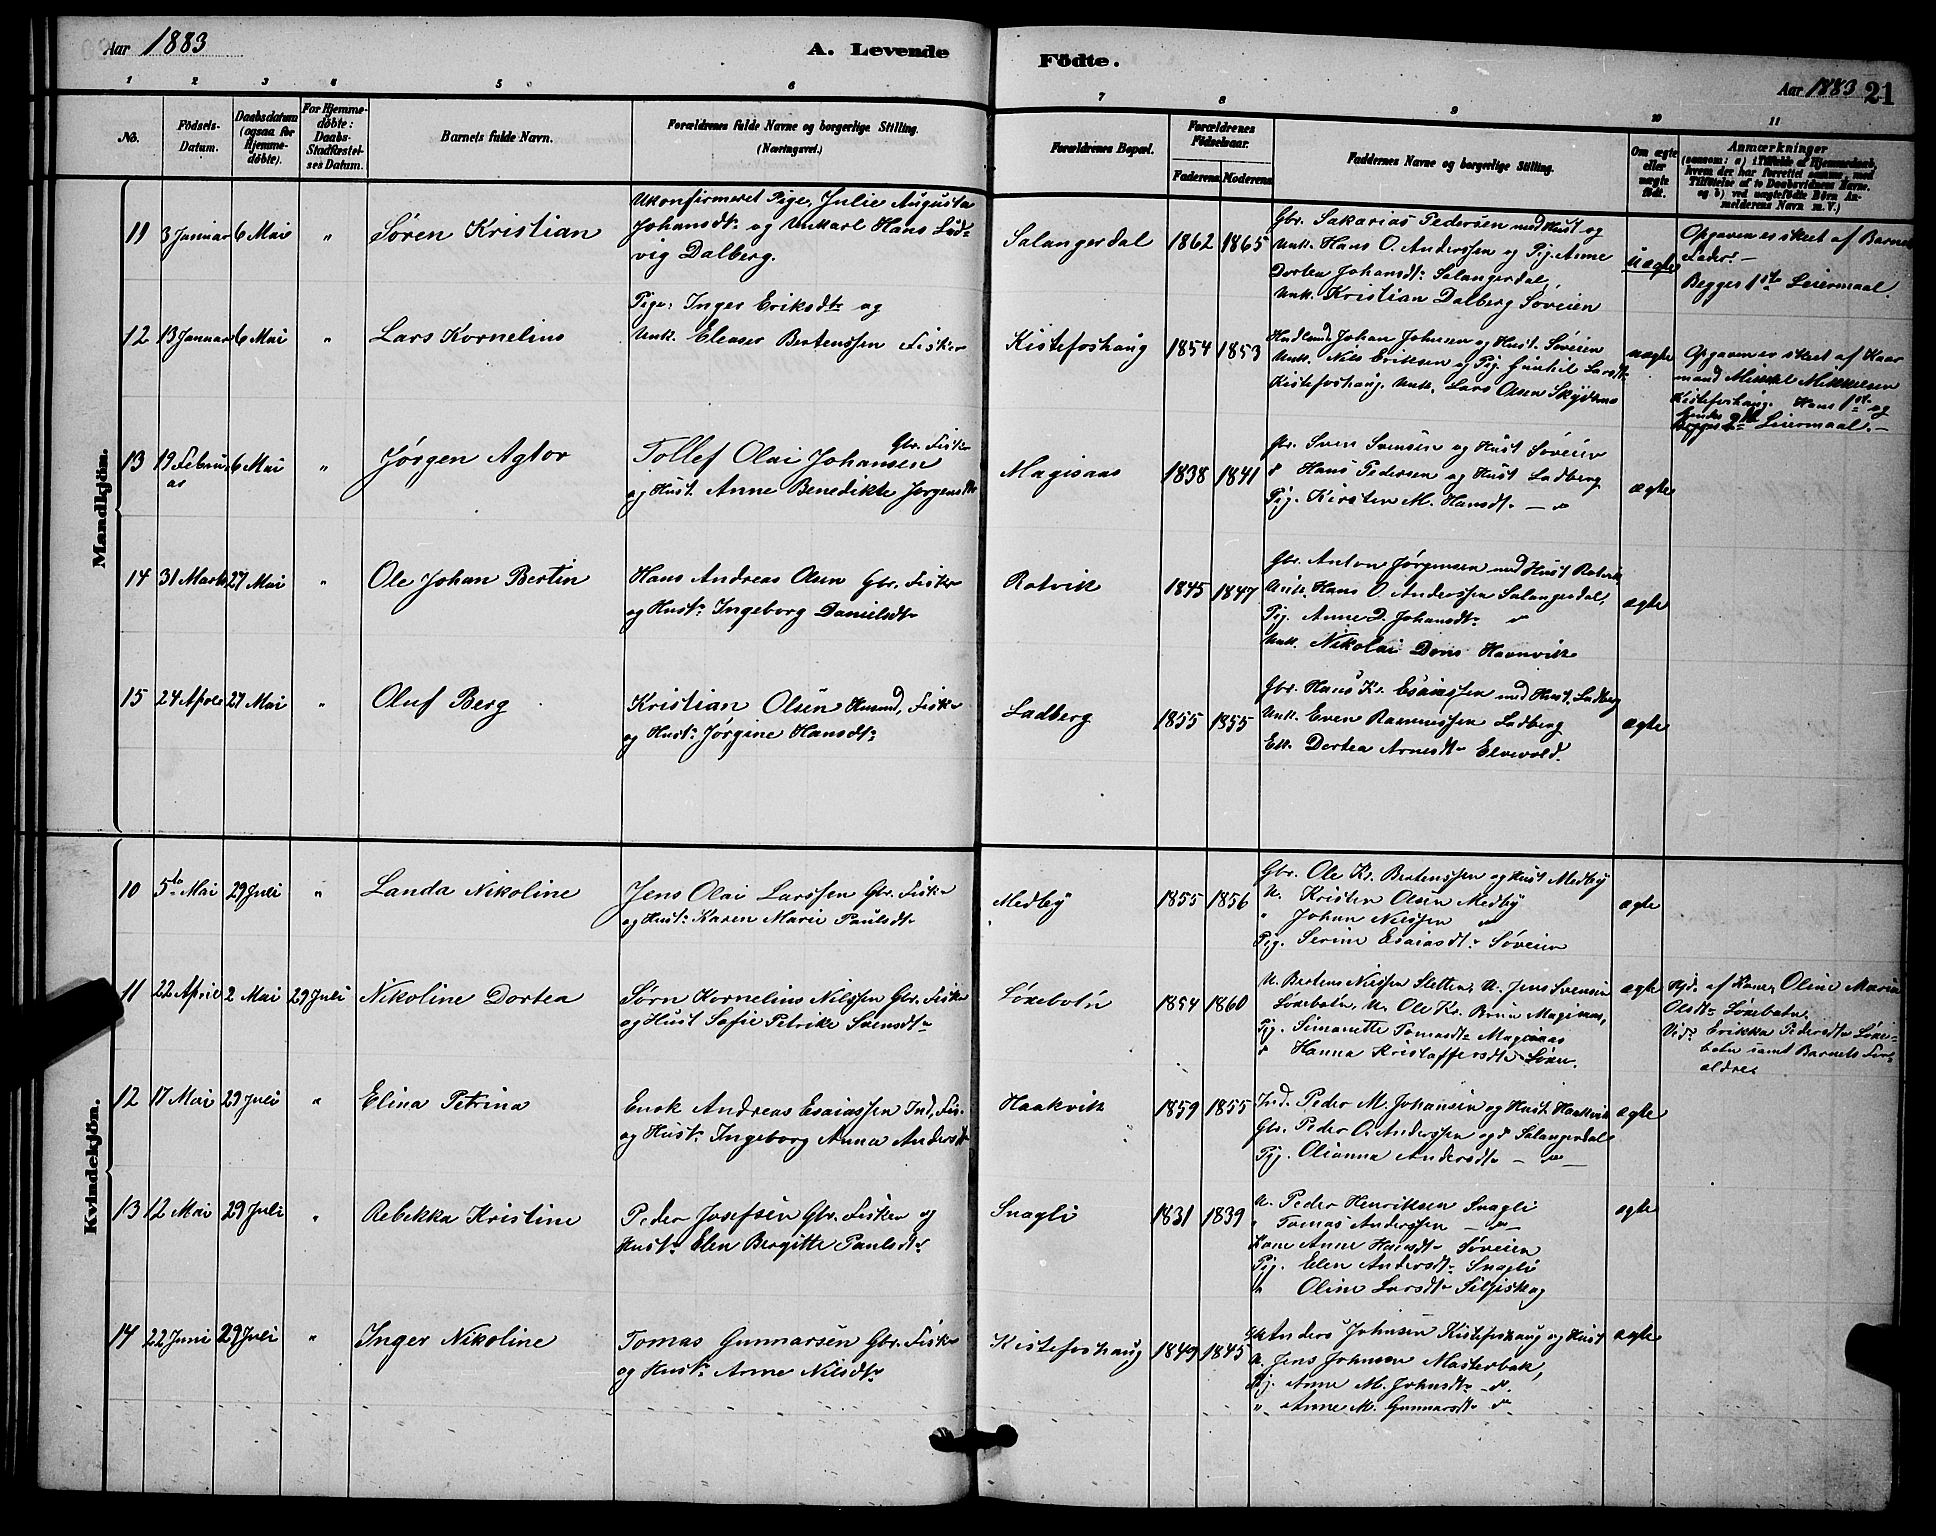 Aar 1883
A. Levende
Födte.
Aar 1883 21
1 2 3 4 5 6
7 8 9 10 11
No.
Födsels-Datum.
Daabsdatum (ogsaa for Hjemme-döbte).
For Hjemme-döbte: Daabs-Stadfæstel-ses Datum.
Barnets fulde Navn.
Forældrenes fulde Navne og borgerlige Stilling. (Næringsvei.)
Forældrenes Bopæl.
Forældrenes Födselsaar.
Faderens Moderens
Faddernes Navne og borgerlige Stilling.
Om ægte eller uægte födt.
Anmærkninger
(saasom: a) i Tilfælde af Hjemmedaab, hvem der har forrettet samme, med Tilföielse af to Daabsvidners Navne, og b) ved uægtefödte Börn An-melderens Navn m. V.)
Mandkjön.
11 3 Januar 6 Mai " Søren Kristian
Ukonfirmeret Pige, Julie Augusta
Johansdtr og Unkarl Hans Lud-
vig Dalberg.
Salangsdal 1862 1865
Gbr. Sakarias Pedersen med Hust og
Unk. Hans O. Anderssen og Pig. Anne
Dortea Johansdtr Salangsdal,
Unk. Kristian Dalberg Søveien
uægte
Opgaven er skeet af Barnets
Fader. –
Begges 1ste Leiermaal.
12 13 Januar 6 Mai " Lars Kornelius
Pige: Inger Eriksdtr og
Unk. Eleaser Bertenssen Fisker
Kistefoshaug 1854 1853
Husmd Johan Johnsen og Hust. Søveien
Unk. Nils Eriksen og Pig. Gunhil Larsdtr
Kistefoshaug. Unk. Lars Olsen
uægte
Opgaven er skeet af Kaar
mand Mikkel Mikkelsen
Kistefoshaug. Hans 1ste og
hendes 2det Leiermaal. –
13 19 Febru
ar 6 Mai " Jørgen Agtor
Tollef Olai Johansen Gbr. Fisker
og Hust. Anne Benedikte Jørgensdtr
Magisaas 1838 1841
Gbr. Sven Svensen og Hust Søveien
" Hans Pedersen og Hust Ladberg
Pig. Kirsten M. Hansdtr – " –
ægte
14 31 Marts 27 Mai " Ole Johan Bertin
Hans Andreas Olsen Gbr. Fisker
og Hustr Ingeborg Danielsdtr
Rotvik 1845 1847
Gbr. Anton Jørgensen med Hust Rotvik
Unk. Hans O. Anderssen Salangsdal,
Pig. Anne D. Johansdtr "
Unk. Nikolai Dons Havnvik
ægte
15 24 April 27 Mai " Oluf Berg
Kristian Olsen Husmd, Fisker
og Hustr Jørgine Hansdtr
Ladberg 1855 1855
Gbr. Hans Kr. Esaiassen med Hust. Ladberg
Unk. Even Rasmussen Ladberg
Ek. Dortea Arnesdtr Elvevold.
ægte
Kvindekjön.
10 5te Mai 29 Juli " Landa Nikoline
Jens Olai Larssen Gbr. Fisker
og Hustr Karen Marie Paulsdtr
Medby 1855 1856
Gbr. Ole Kr. Bertenssen og Hust Medby
U. Kristen Olsen Medby
" Johan Nilssen "
Pig. Serine Esaiasdtr Søveien
ægte
11 22 April 2 Mai 29 Juli Nikoline Dortea
Sørn Kornelius Nilssen Gbr. Fisker
og Hust Sofie Petrike Svensdtr
Løksebotn 1854 1860
U. Bertens Nilssen Sletten, U. Jens Svensen
Løksebotn, U. Ole Kr. Brun Magisaas,
Pig. Simonette Tomasdtr Magisaas
" Hanna Kristoffersdtr Løksen.
ægte
Hjd. af Kone Oline Marie
Olsdtr Løksebotn,
Vid: Erikka Pedersdtr Løkse-
botn samt Barnets For-
ældre.
12 17 Mai 29 Juli " Elina Petrina
Enok Andreas Esaiassen Ind, Fis.
og Hustr Ingeborg Anna Andersdtr
Haakvik 1859 1855
Ind. Peder M. Johansen og Hust. Haakvik
Gbr. Peder O. Anderssen og " Salangsdal
Pig. Olianna Andersdtr – " –
ægte
13 12 Mai 29 Juli " Rebekka Kristine
Peder Josefsen Gbr. Fisker og
Hustr Elen Bergitte Paulsdtr
Snagli 1831 1839
U. Peder Henriksen Snagli
" Tomas Anderssen – " –
Kone Anne Hansdtr Søveien
Pig. Elen Andersdtr Snagli
" Oline Larsdtr Seljeskog
ægte
14 22 Juni 29 Juli " Inger Nikoline
Tomas Gunnarsen Gbr. Fisker
og Hustr Anne Nilsdtr
Kistefoshaug 1849 1845
Gbr Anders Johnsen Kistefoshaug og Hust
U. Jens Johnsen Masterbak,
Pig. Anne M. Johnsdtr "
" Anne M. Gunnarsdtr "
ægte